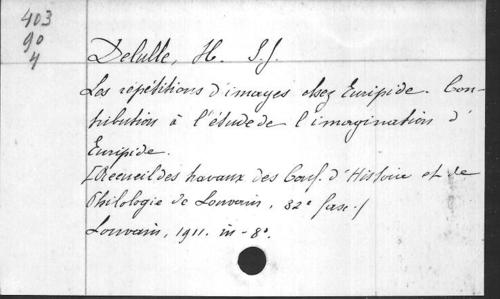 403
90
4
Delulle, H. S.J.
Les répétitions d'images chez Euripide. Con-
tribution à l'étude de l'imagination d'
Euripide.
[Recueil des travaux des Conf. d'Histoire et de
Philologie de Louvain, 32e fasc./
Louvain, 1911. in-8°.